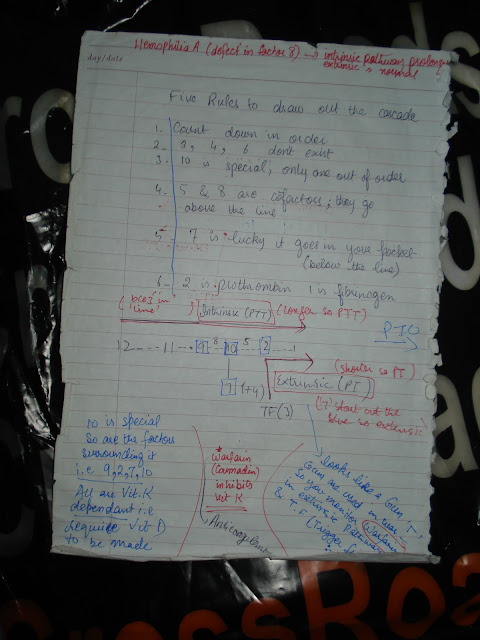 Hemophilia A (defect in factor 8) → intrinsic pathway prolong
extrinsic → normal
day/date
Five Rules to draw out the cascade
1. Count down in order
2. 3, 4, 6 dont exist
3. 10 is special, only one out of order
4. 5 & 8 are cofactors; they go
above the line
5. 7 is lucky it goes in your pocket
(below the line)
6. 2 is prothrombin 1 is fibrinogen
(bcoz in 'line') Intrinsic (PTT) (longer so PTT)
12 --- 11 --- 9 8 10 5 2 --- 1
(shorter so PT)
7 (+4) Extrinsic (PT)
TF(3) (7) start out the
blue so extrinsic
10 is special
So are the factors
surrounding it
i.e 9,2,7,10
All are Vit.K
dependant i.e
require Vit
to be made
Warfarin
(Coumadin)
inhibits
vit K
Anticoagulant
looks like a Gun 'T',
Guns are used in war –
so you monitor Warfarin
in extrinsic Pathway
& T.F (Trigger
CrossRoa